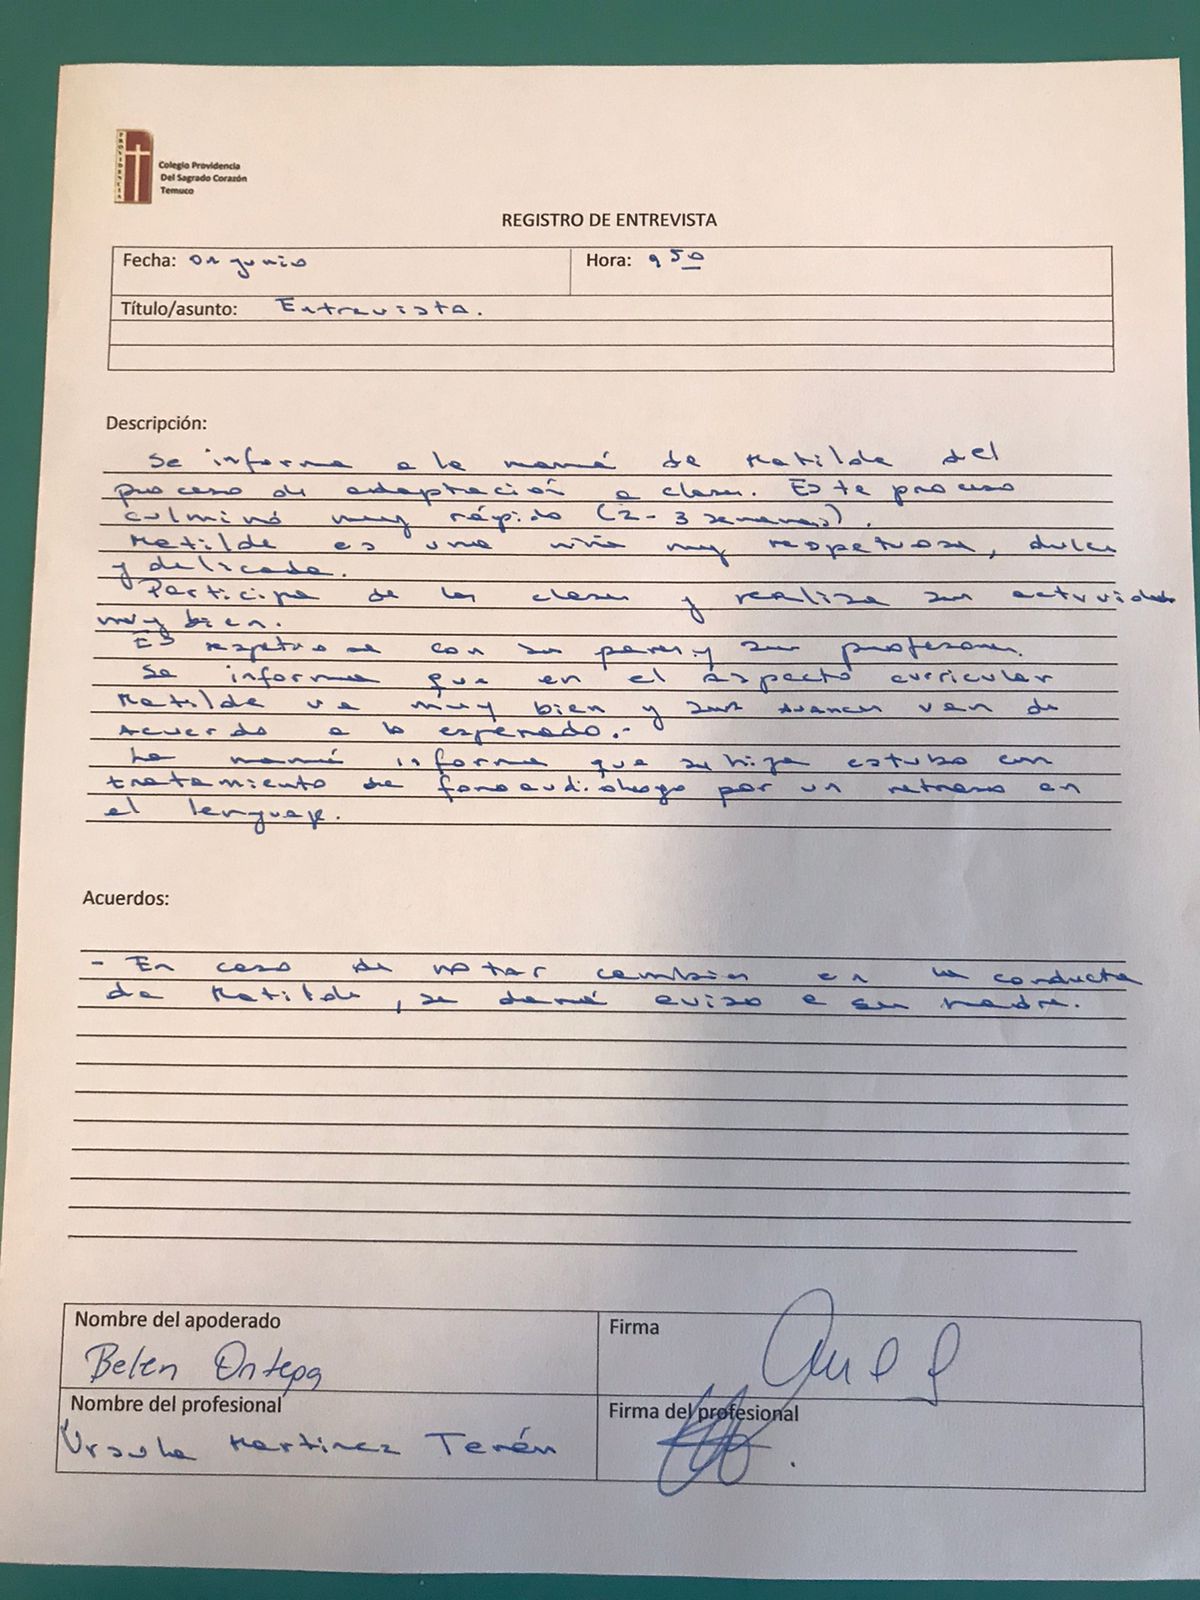 PROVIDENCIA
Colegio Providencia
Del Sagrado Corazón
Temuco
REGISTRO DE ENTREVISTA
Fecha: 01 junio
Hora: 9 50
Título/asunto: Entrevista.
Descripción:
Se informa a la mamá de Matilde del
proceso de adaptación a clases. Este proceso
culminó muy rápido (2-3 semanas).
Matilde es una niña muy respetuosa, dulce
y delicada.
Participa de las clases y realiza sus actividades
muy bien.
Es respetuosa con sus pares y sus profesores.
Se informa que en el aspecto curricular
Matilde va muy bien y sus avances van de
acuerdo a lo esperado.-
La mamá informa que su hija estubo con
tratamiento de fonoaudiologo por un retraso en
el lenguaje.
Acuerdos:
- En caso de notar cambios en la conducta
de Matilde, se dará aviso a su madre.
Nombre del apoderado
Firma
Belen Ortega
Nombre del profesional
Firma del profesional
Ursula Martinez Terán